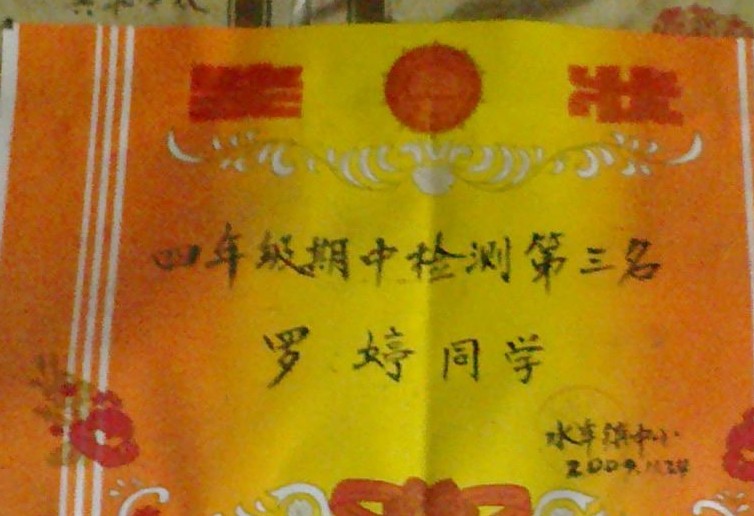 奖状
四年级期中检测第三名
罗婷同学
水车镇中小
2009.11.24